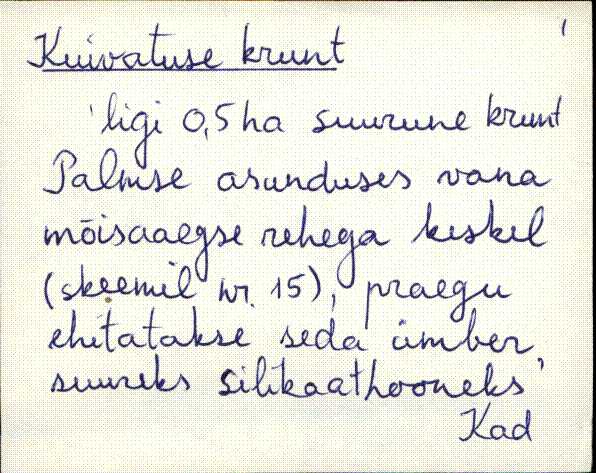 Kuivatuse krunt
'ligi 0,5 ha suurune krunt
Palmse asunduses vana
mõisaaegse rehega keskel
(skeemil nr. 15), praegu
ehitatakse seda ümber
suureks silikaathooneks'
Kad